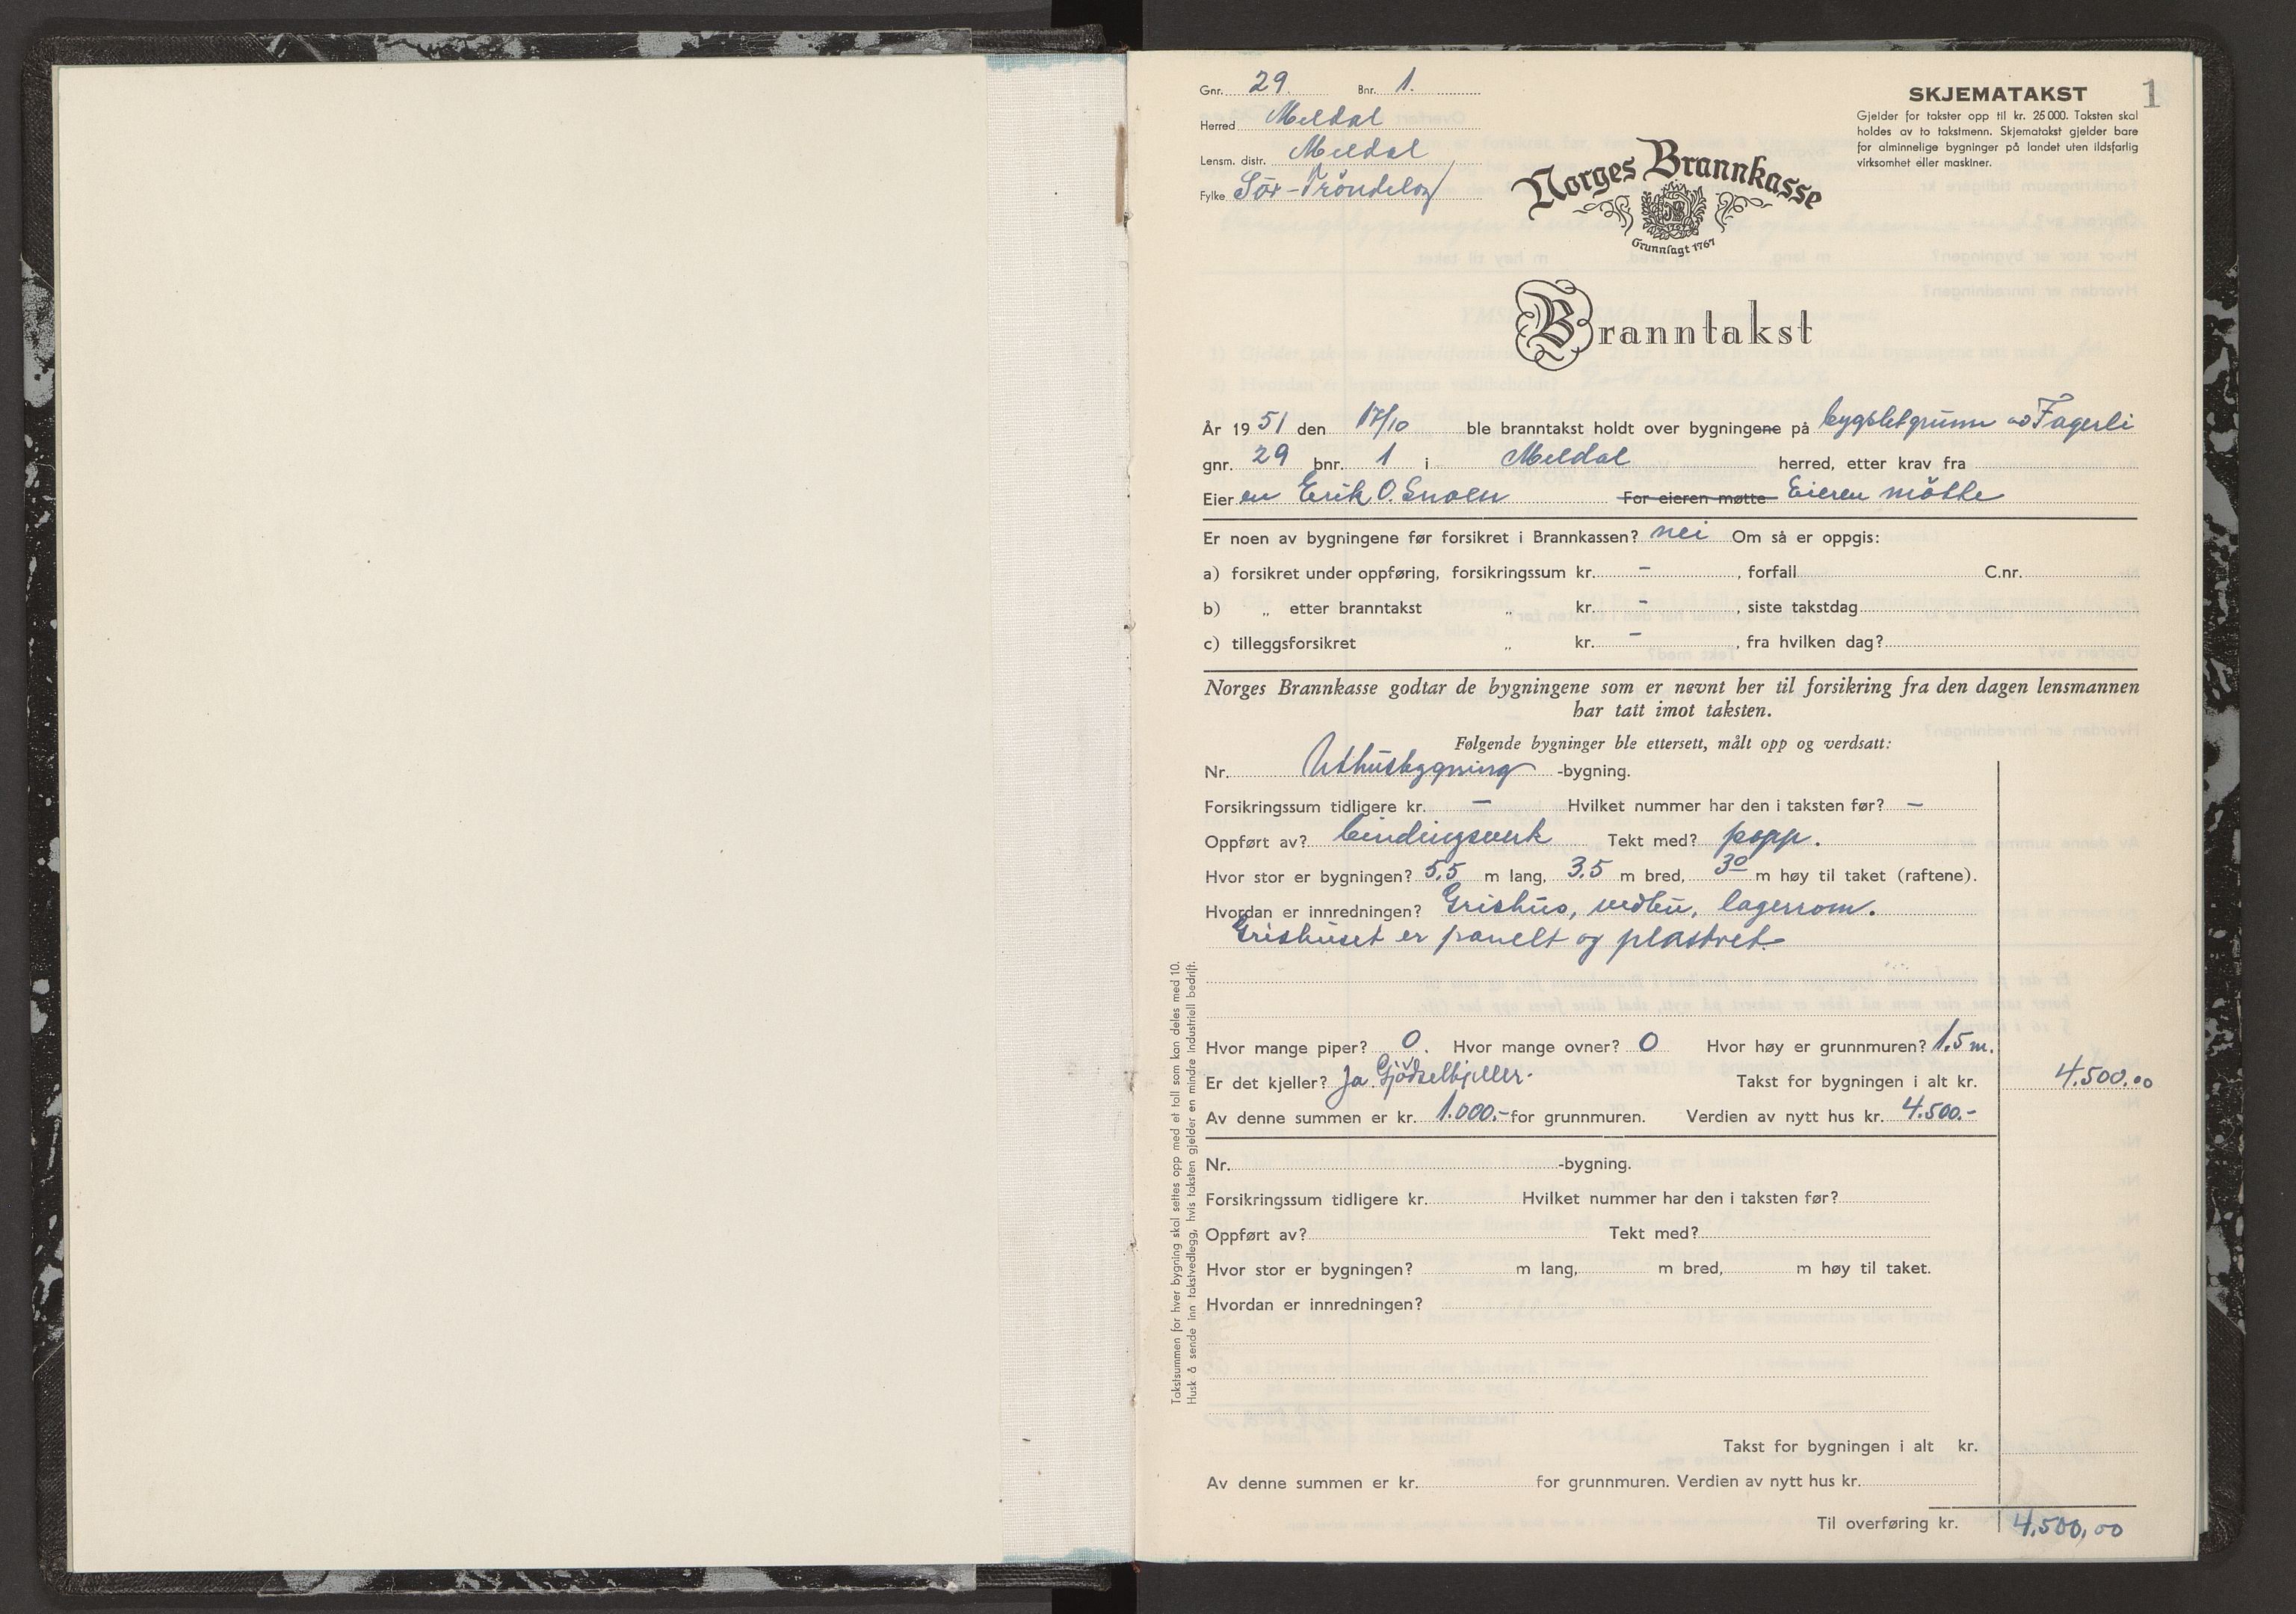 Gnr. 29. Bnr. 1.
Herred Meldal
Lensm. distr. Meldal
Fylke Sör-Tröndelag
SKJEMATAKST 1
Gjelder for takster opp til kr. 25 000. Taksten skal
holdes av to takstmenn. Skjematakst gjelder bare
for alminnelige bygninger på landet uten ildsfarlig
virksomhet eller maskiner.
Norges Brannkasse
Grunnlagt 1767
Branntakst
År 1951 den 17/10 ble branntakst holdt over bygningene på bygsletgrunn av Fagerli
gnr. 29 bnr. 1 i Meldal herred, etter krav fra
Eieren Erik O. Snoen For eieren møtte Eieren mötte
Er noen av bygningene før forsikret i Brannkassen? nei Om så er oppgis:
a) forsikret under oppføring, forsikringssum kr. - , forfall C.nr.
b) „ etter branntakst „ kr. - , siste takstdag
c) tilleggsforsikret „ kr. - , fra hvilken dag?
Norges Brannkasse godtar de bygningene som er nevnt her til forsikring fra den dagen lensmannen
har tatt imot taksten.
Følgende bygninger ble ettersett, målt opp og verdsatt:
Nr. Uthusbygning -bygning.
Forsikringssum tidligere kr. - Hvilket nummer har den i taksten før? -
Oppført av? bindingsverk Tekt med? papp.
Hvor stor er bygningen? 5,5 m lang, 3.5 m bred, 30 m høy til taket (raftene).
Hvordan er innredningen? Grishus, vedbu, lagerrom.
Grishuset er panelt og plastret.
Hvor mange piper? 0. Hvor mange ovner? 0 Hvor høy er grunnmuren? 1.5 m.
Er det kjeller? Ja Gjödselkjeller. Takst for bygningen i alt kr. 4.500.00
Av denne summen er kr. 1.000.- for grunnmuren. Verdien av nytt hus kr. 4.500.-
Nr. -bygning.
Forsikringssum tidligere kr. Hvilket nummer har den i taksten før?
Oppført av? Tekt med?
Hvor stor er bygningen? m lang, m bred, m høy til taket.
Hvordan er innredningen?
Takst for bygningen i alt kr.
Av denne summen er kr. for grunnmuren. Verdien av nytt hus kr.
Til overføring kr. 4.500,00
Takstsummen for hver bygning skal settes opp med et tall som kan deles med 10.
Husk å sende inn takstvedlegg, hvis taksten gjelder en mindre industriell bedrift.